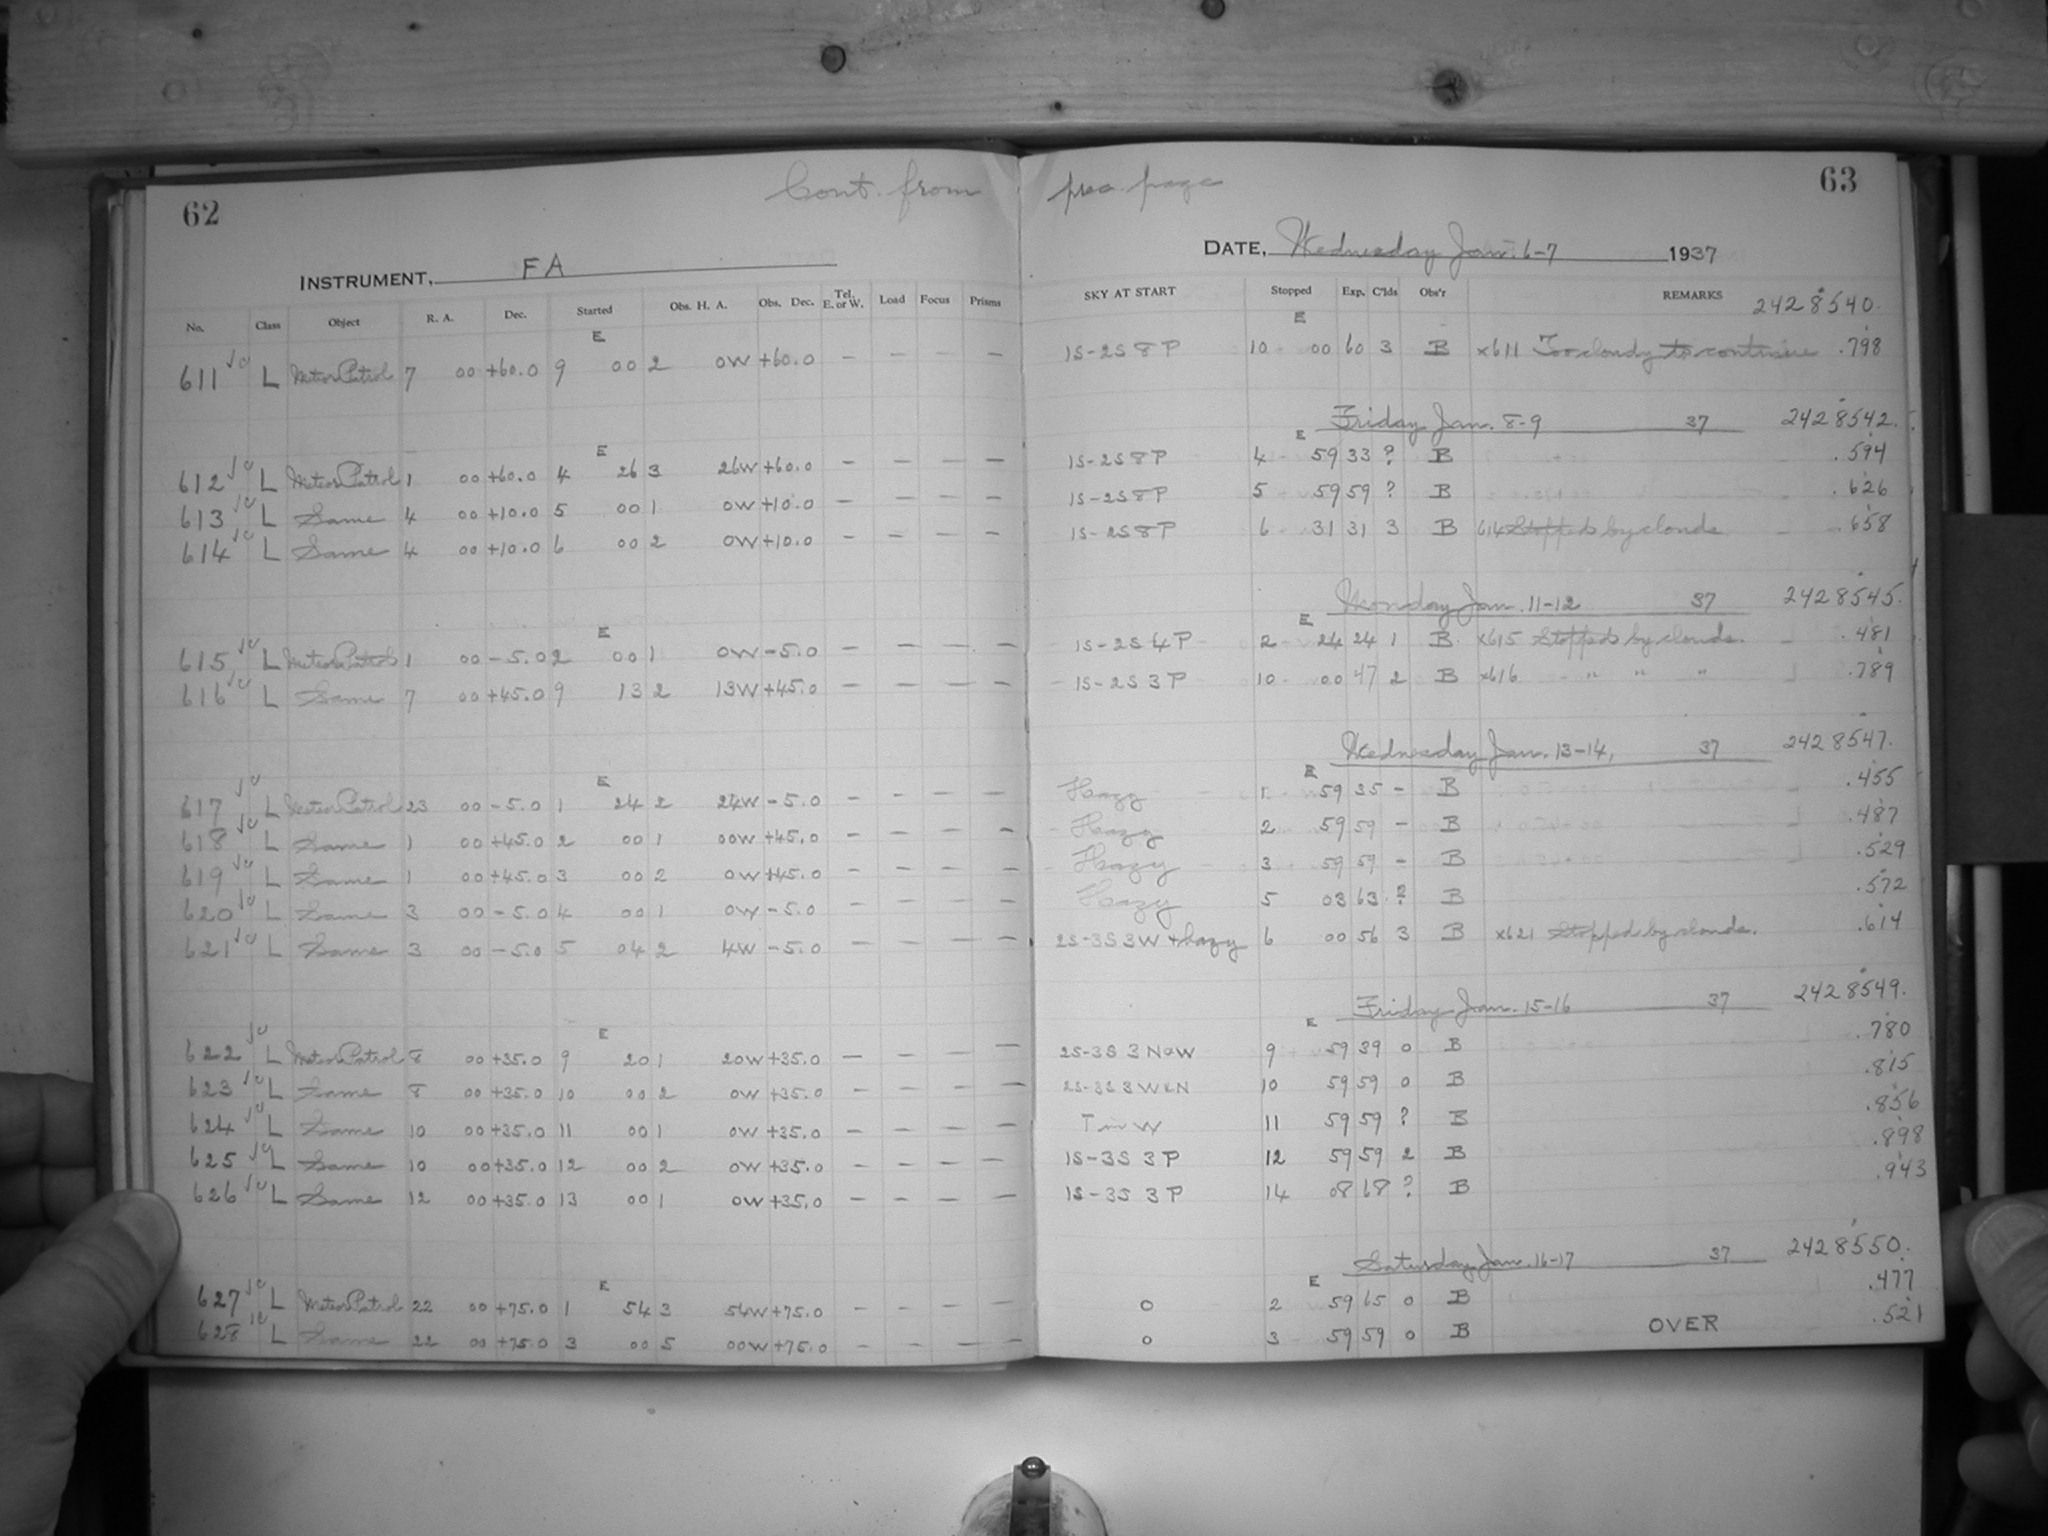 Cont. from prec. page
62 63
INSTRUMENT, FA DATE, Wednesday Jan. 6-7 1937
No. Class Object R. A. Dec. Started Obs. H. A. Obs. Dec. Tel. E. or W. Load Focus Prisms SKY AT START Stopped Exp. C'lds Obs'r REMARKS 2428540.
E E
611 L Meteor Patrol 7 00 +60.0 9 00 2 0W +60.0 — — — — 1S-2S 8 P 10 00 60 3 B x611 Too cloudy to continue .798
Friday Jan. 8-9 37 2428542.
E E
612 L Meteor Patrol 1 00 +60.0 4 26 3 26W +60.0 — — — — 1S-2S 8 P 4 59 33 ? B .594
613 L Same 4 00 +10.0 5 00 1 0W +10.0 — — — — 1S-2S 8 P 5 59 59 ? B .626
614 L Same 4 00 +10.0 6 00 2 0W +10.0 — — — — 1S-2S 8 P 6 31 31 3 B 614 Stopped by clouds .658
Monday Jan. 11-12 37 2428545.
E E
615 L Meteor Patrol 1 00 -5.0 2 00 1 0W -5.0 — — — — 1S-2S 4 P 2 24 24 1 B x615 Stopped by clouds. .481
616 L Same 7 00 +45.0 9 13 2 13W +45.0 — — — — 1S-2S 3 P 10 00 47 2 B x616 " " " .789
Wednesday Jan. 13-14, 37 2428547.
E E
617 L Meteor Patrol 23 00 -5.0 1 24 2 24W -5.0 — — — — Hazy 1 59 35 - B .455
618 L Same 1 00 +45.0 2 00 1 00W +45.0 — — — — Hazy 2 59 59 - B .487
619 L Same 1 00 +45.0 3 00 2 0W +45.0 — — — — Hazy 3 59 59 - B .529
620 L Same 3 00 -5.0 4 00 1 0W -5.0 — — — — Hazy 5 03 63 ? B .572
621 L Same 3 00 -5.0 5 04 2 4W -5.0 — — — — 2S-3S 3W + hazy 6 00 56 3 B x621 Stopped by clouds. .614
Friday Jan. 15-16 37 2428549.
E E
622 L Meteor Patrol 8 00 +35.0 9 20 1 20W +35.0 — — — — 2S-3S 3 NoW 9 59 39 0 B .780
623 L Same 8 00 +35.0 10 00 2 0W +35.0 — — — — 2S-3S 3 W&N 10 59 59 0 B .815
624 L Same 10 00 +35.0 11 00 1 0W +35.0 — — — — 11 59 59 ? B .856
625 L Same 10 00 +35.0 12 00 2 0W +35.0 — — — — 1S-3S 3 P 12 59 59 2 B .898
626 L Same 12 00 +35.0 13 00 1 0W +35.0 — — — — 1S-3S 3 P 14 08 68 ? B .943
Saturday Jan. 16-17 37 2428550.
E E
627 L Meteor Patrol 22 00 +75.0 1 54 3 54W +75.0 — — — — 0 2 59 65 0 B .477
628 L Same 22 00 +75.0 3 00 5 00W +75.0 — — — — 0 3 59 59 0 B OVER .521